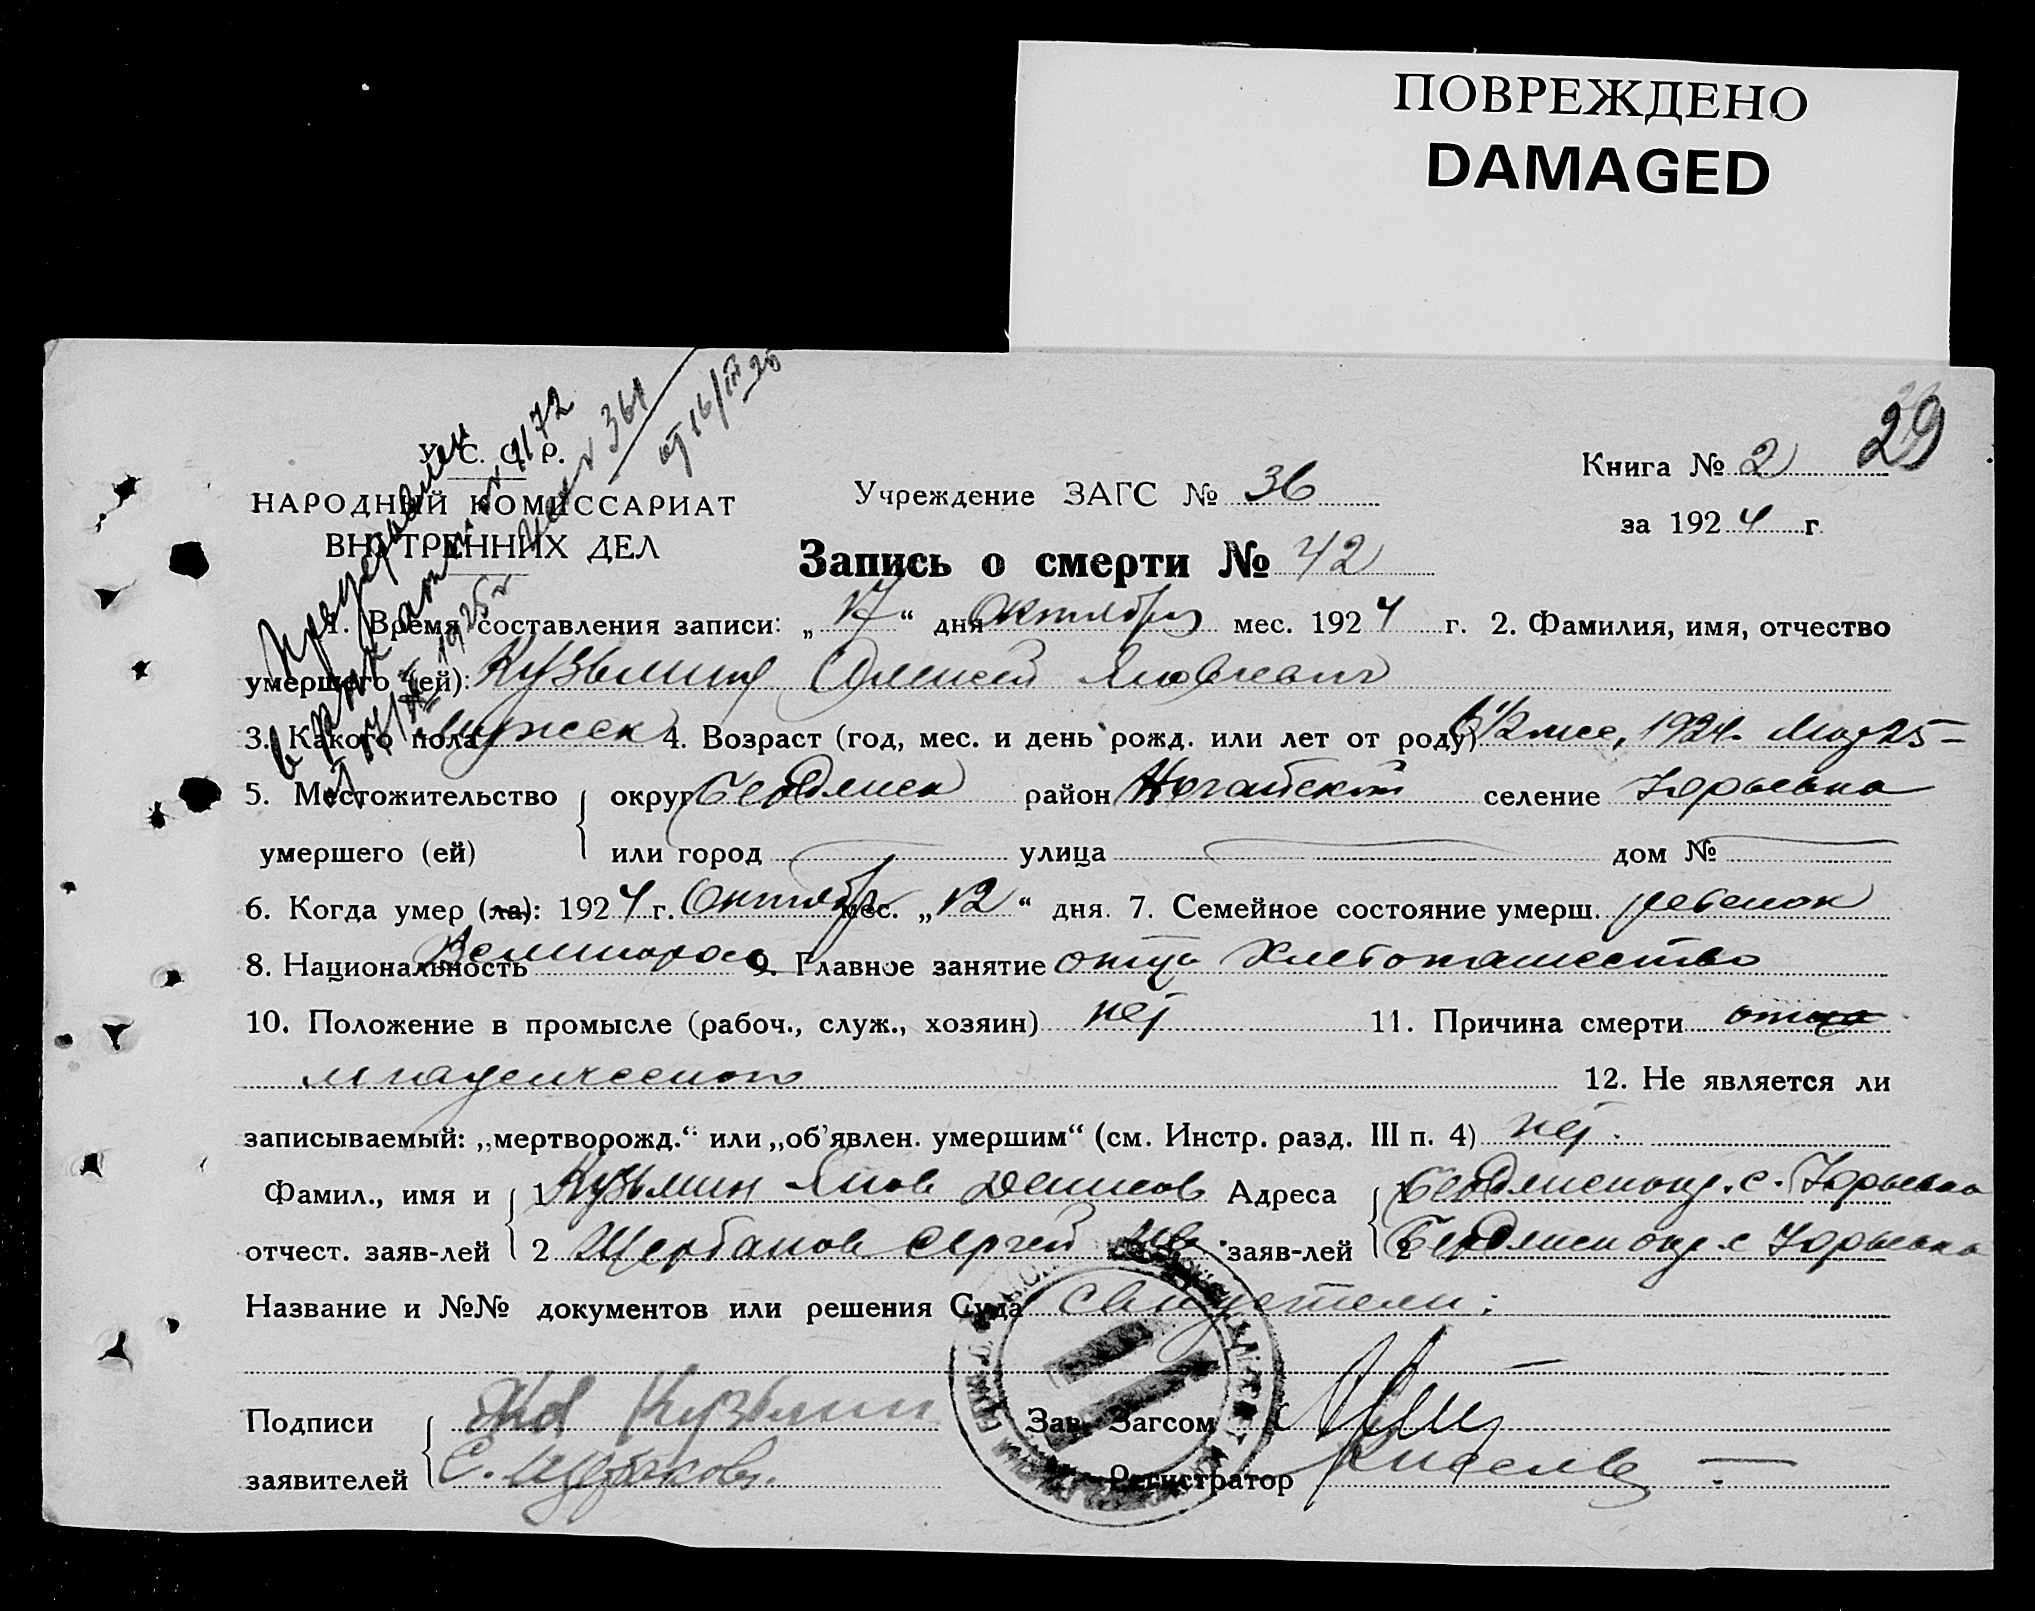 ПОВРЕЖДЕНО
DAMAGED
29
У. С. С. Р.
НАРОДНЫЙ КОМИССАРИАТ
ВНУТРЕННИХ ДЕЛ
Учреждение ЗАГС № 36
Книга № 2
за 1924 г.
Запись о смерти № 42
1. Время составления записи: „17“ дня октября мес. 1924 г. 2. Фамилия, имя, отчество
умершего (ей): Кузьмин Алексей Яковлевич
3. Какого пола мужск 4. Возраст (год, мес. и день рожд. или лет от роду) 1/2 мес, 1924
5. Местожительство округ Бердянск район Ногайский селение Юрьевка
умершего (ей) или город улица дом №
6. Когда умер (ла): 1924 г. Октябр мес. „12“ дня. 7. Семейное состояние умерш. ребенок
8. Национальность Великорос 9. Главное занятие отца Хлебопашество
10. Положение в промысле (рабоч., служ., хозяин) нет 11. Причина смерти от
младенческого 12. Не является ли
записываемый: „мертворожд.“ или „об'явлен. умершим“ (см. Инстр. разд. III п. 4) нет.
Фамил., имя и 1 Кузьмин Яков Денисов Адреса 1 Бердянск окр. с. Юрьевка
отчест. заяв-лей 2 Щербаков Сергей Ив. заяв-лей 2 Бердянск окр с Юрьевка
Название и №№ документов или решения Суда свидетели:
Подписи Яков Кузьмин Зав. Загсом
заявителей С. Щербаков. Регистратор